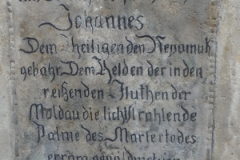 Johannes
Dem heiligen den Nepomuk
gebahr. Dem Helden der in den
reißenden Fluthen der
Moldau die lichtstrahlende
Palme des Martertodes